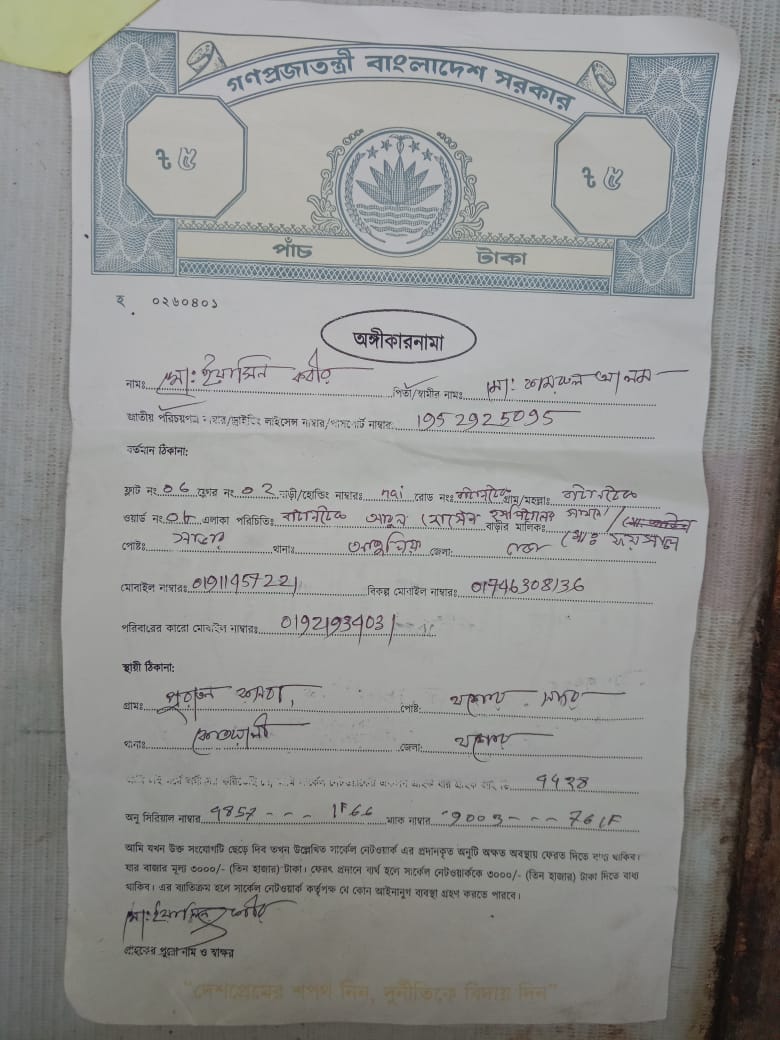 গণপ্রজাতন্ত্রী বাংলাদেশ সরকার
৳ ৫
৳ ৫
পাঁচ টাকা
হ ০২৬০৪০১
অঙ্গীকারনামা
নামঃ মো: ইয়াসিন কবীর পিতা/স্বামীর নামঃ মো: আলম
জাতীয় পরিচয়পত্র নাম্বার/ড্রাইভিং লাইসেন্স নাম্বার/পাসপোর্ট নাম্বারঃ 1952925095
বর্তমান ঠিকানা:
ফ্লাট নংঃ 06 ফ্লোর নংঃ 02 বাড়ী/হোল্ডিং নাম্বারঃ nai রোড নংঃ গ্রাম/মহল্লাঃ
ওয়ার্ড নংঃ 06 এলাকা পরিচিতিঃ হোসেন সামনে/ বাড়ীর মালিকঃ
পোষ্টঃ সাভার থানাঃ আশুলিয়া জেলা: ঢাকা মোঃ ফয়সাল
মোবাইল নাম্বারঃ 01911457221 বিকল্প মোবাইল নাম্বারঃ 01746308136
পরিবারের কারো মোবাইল নাম্বারঃ 01921934031
স্থায়ী ঠিকানা:
গ্রামঃ পুরাতন কসবা, পোষ্ট: যশোর সদর
থানাঃ কোতয়ালী জেলা: যশোর
9428
অনু সিরিয়াল নাম্বারঃ 4857 --- 1F66 ম্যাক নাম্বারঃ 9003 --- 761F
আমি যখন উক্ত সংযোগটি ছেড়ে দিব তখন উল্লেখিত সার্কেল নেটওয়ার্ক এর প্রদানকৃত অনুটি অক্ষত অবস্থায় ফেরত দিতে বাধ্য থাকিব।
যার বাজার মূল্য ৩০০০/- (তিন হাজার) টাকা। ফেরৎ প্রদানে ব্যর্থ হলে সার্কেল নেটওয়ার্ককে ৩০০০/- (তিন হাজার) টাকা দিতে বাধ্য
থাকিব। এর ব্যতিক্রম হলে সার্কেল নেটওয়ার্ক কর্তৃপক্ষ যে কোন আইনানুগ ব্যবস্থা গ্রহণ করতে পারবে।
মো: ইয়াসিন কবীর
গ্রাহকের পুরো নাম ও স্বাক্ষর
"দেশপ্রেমের শপথ নিন, দুর্নীতিকে বিদায় দিন"